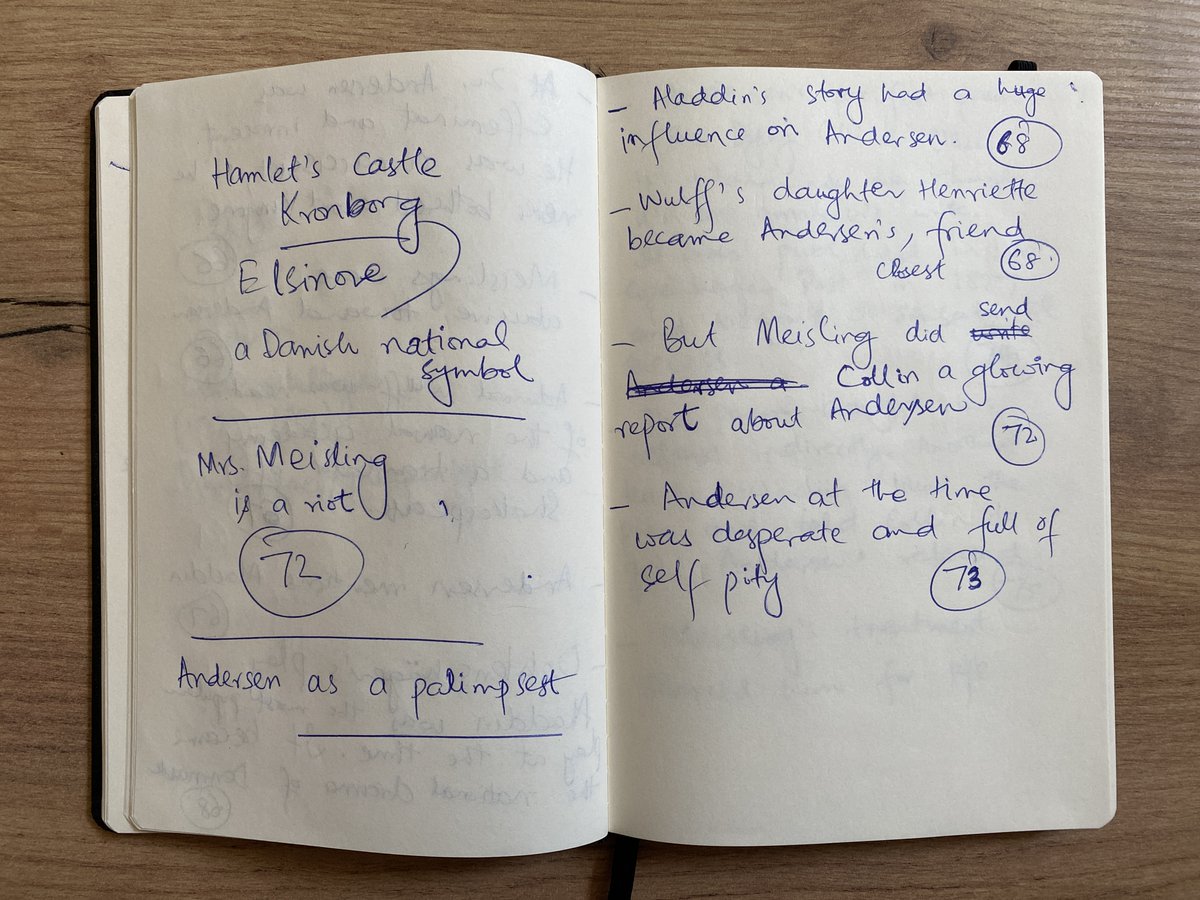 Hamlet's Castle
Kronborg
Elsinore
a Danish national
symbol
Mrs. Meisling
is a riot
72
Andersen as a palimpsest
– Aladdin's story had a huge
influence on Andersen. 68
– Wulff's daughter Henriette
became Andersen's, friend
closest 68
send
– But Meisling did write
Andersen a Collin a glowing
report about Andersen
72
– Andersen at the time
was desperate and full of
self pity 73